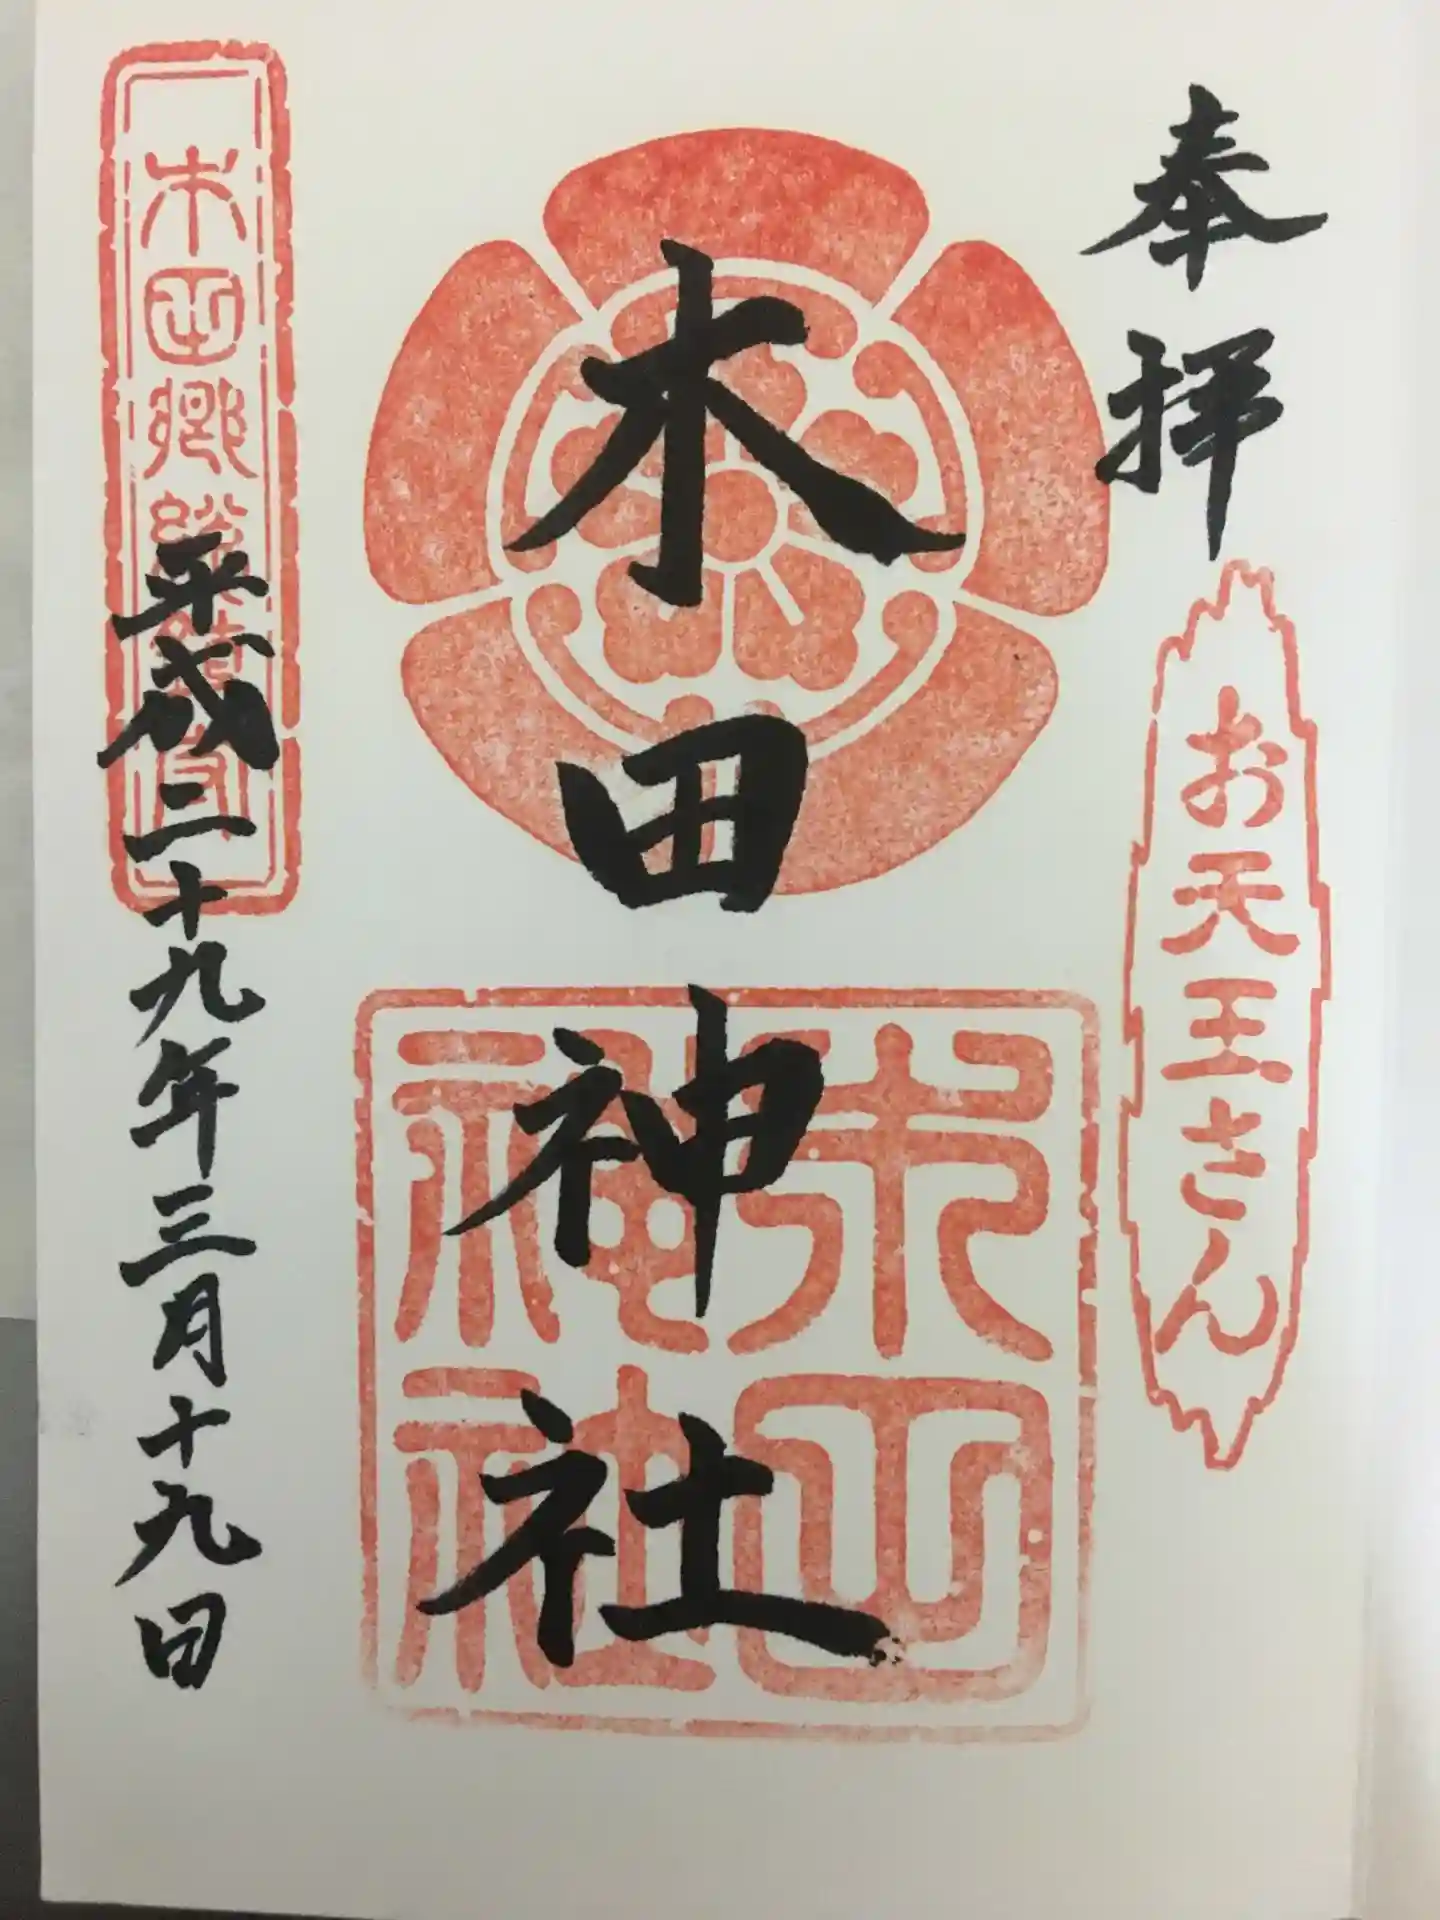 奉拝
お天王さん
木田神社
木田神社
木田郷総鎮守
平成二十九年三月十九日